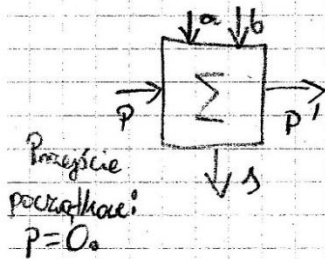 a b
Σ
p p'
s
Przejście
początkowe:
p=0.